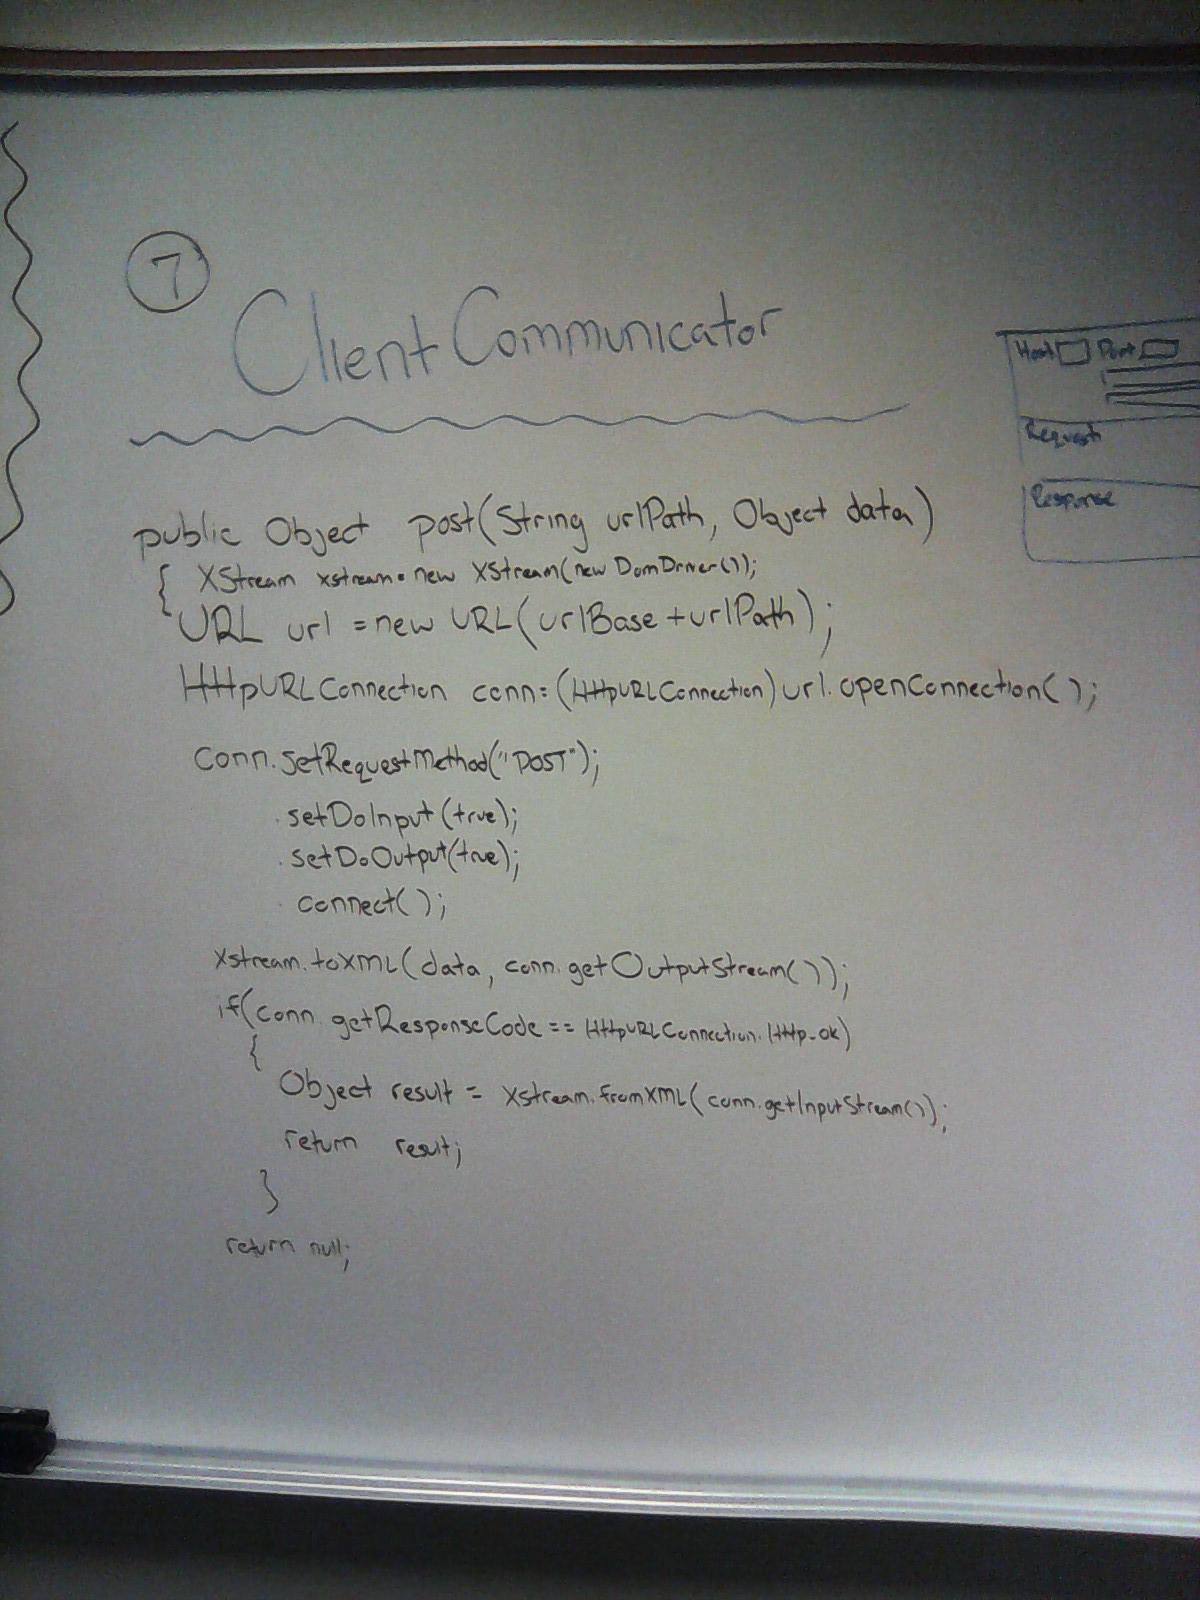 7
ClientCommunicator
Host Port
Request
Response
public Object post(String urlPath, Object data)
{ XStream xstream = new XStream(new DomDriver());
URL url = new URL(urlBase + urlPath);
HttpURLConnection conn = (HttpURLConnection) url.openConnection();
conn.setRequestMethod("POST");
.setDoInput(true);
.setDoOutput(true);
.connect();
xstream.toXML(data, conn.getOutputStream());
if(conn.getResponseCode == HttpURLConnection.Http_OK)
{
Object result = xstream.fromXML(conn.getInputStream());
return result;
}
return null;